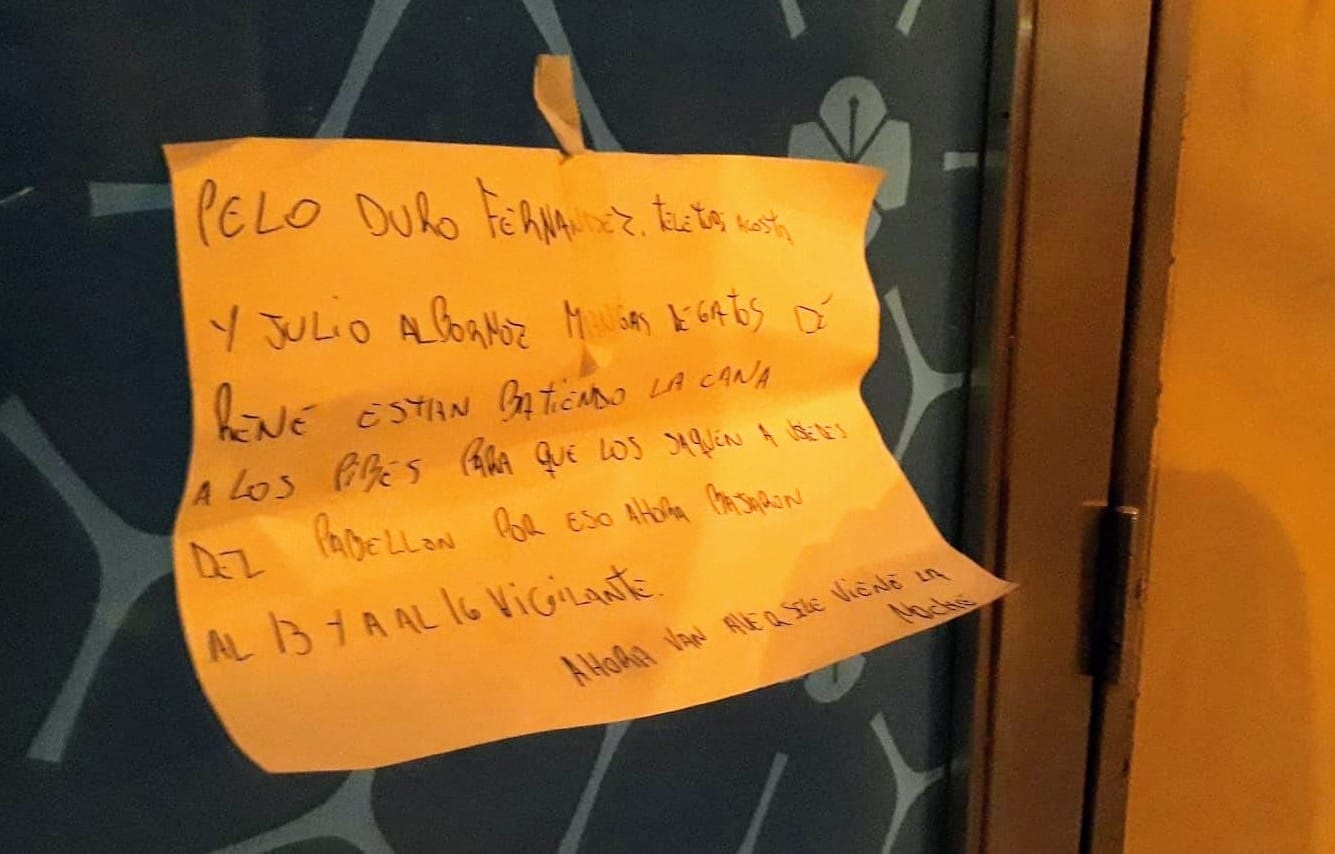 PELO DURO FERNANDEZ. TELETUBI ACOSTA
Y JULIO ALBORNOZ MANGAS DE GATOS DE
RENE ESTAN BATIENDO LA CANA
A LOS PIBES PARA QUE LOS SAQUEN A USTEDES
DEL PABELLON POR ESO AHORA BAJARON
AL 13 Y A AL 16 VIGILANTE.
AHORA VAN AVER Q SELE VIENE LA
NOCHE